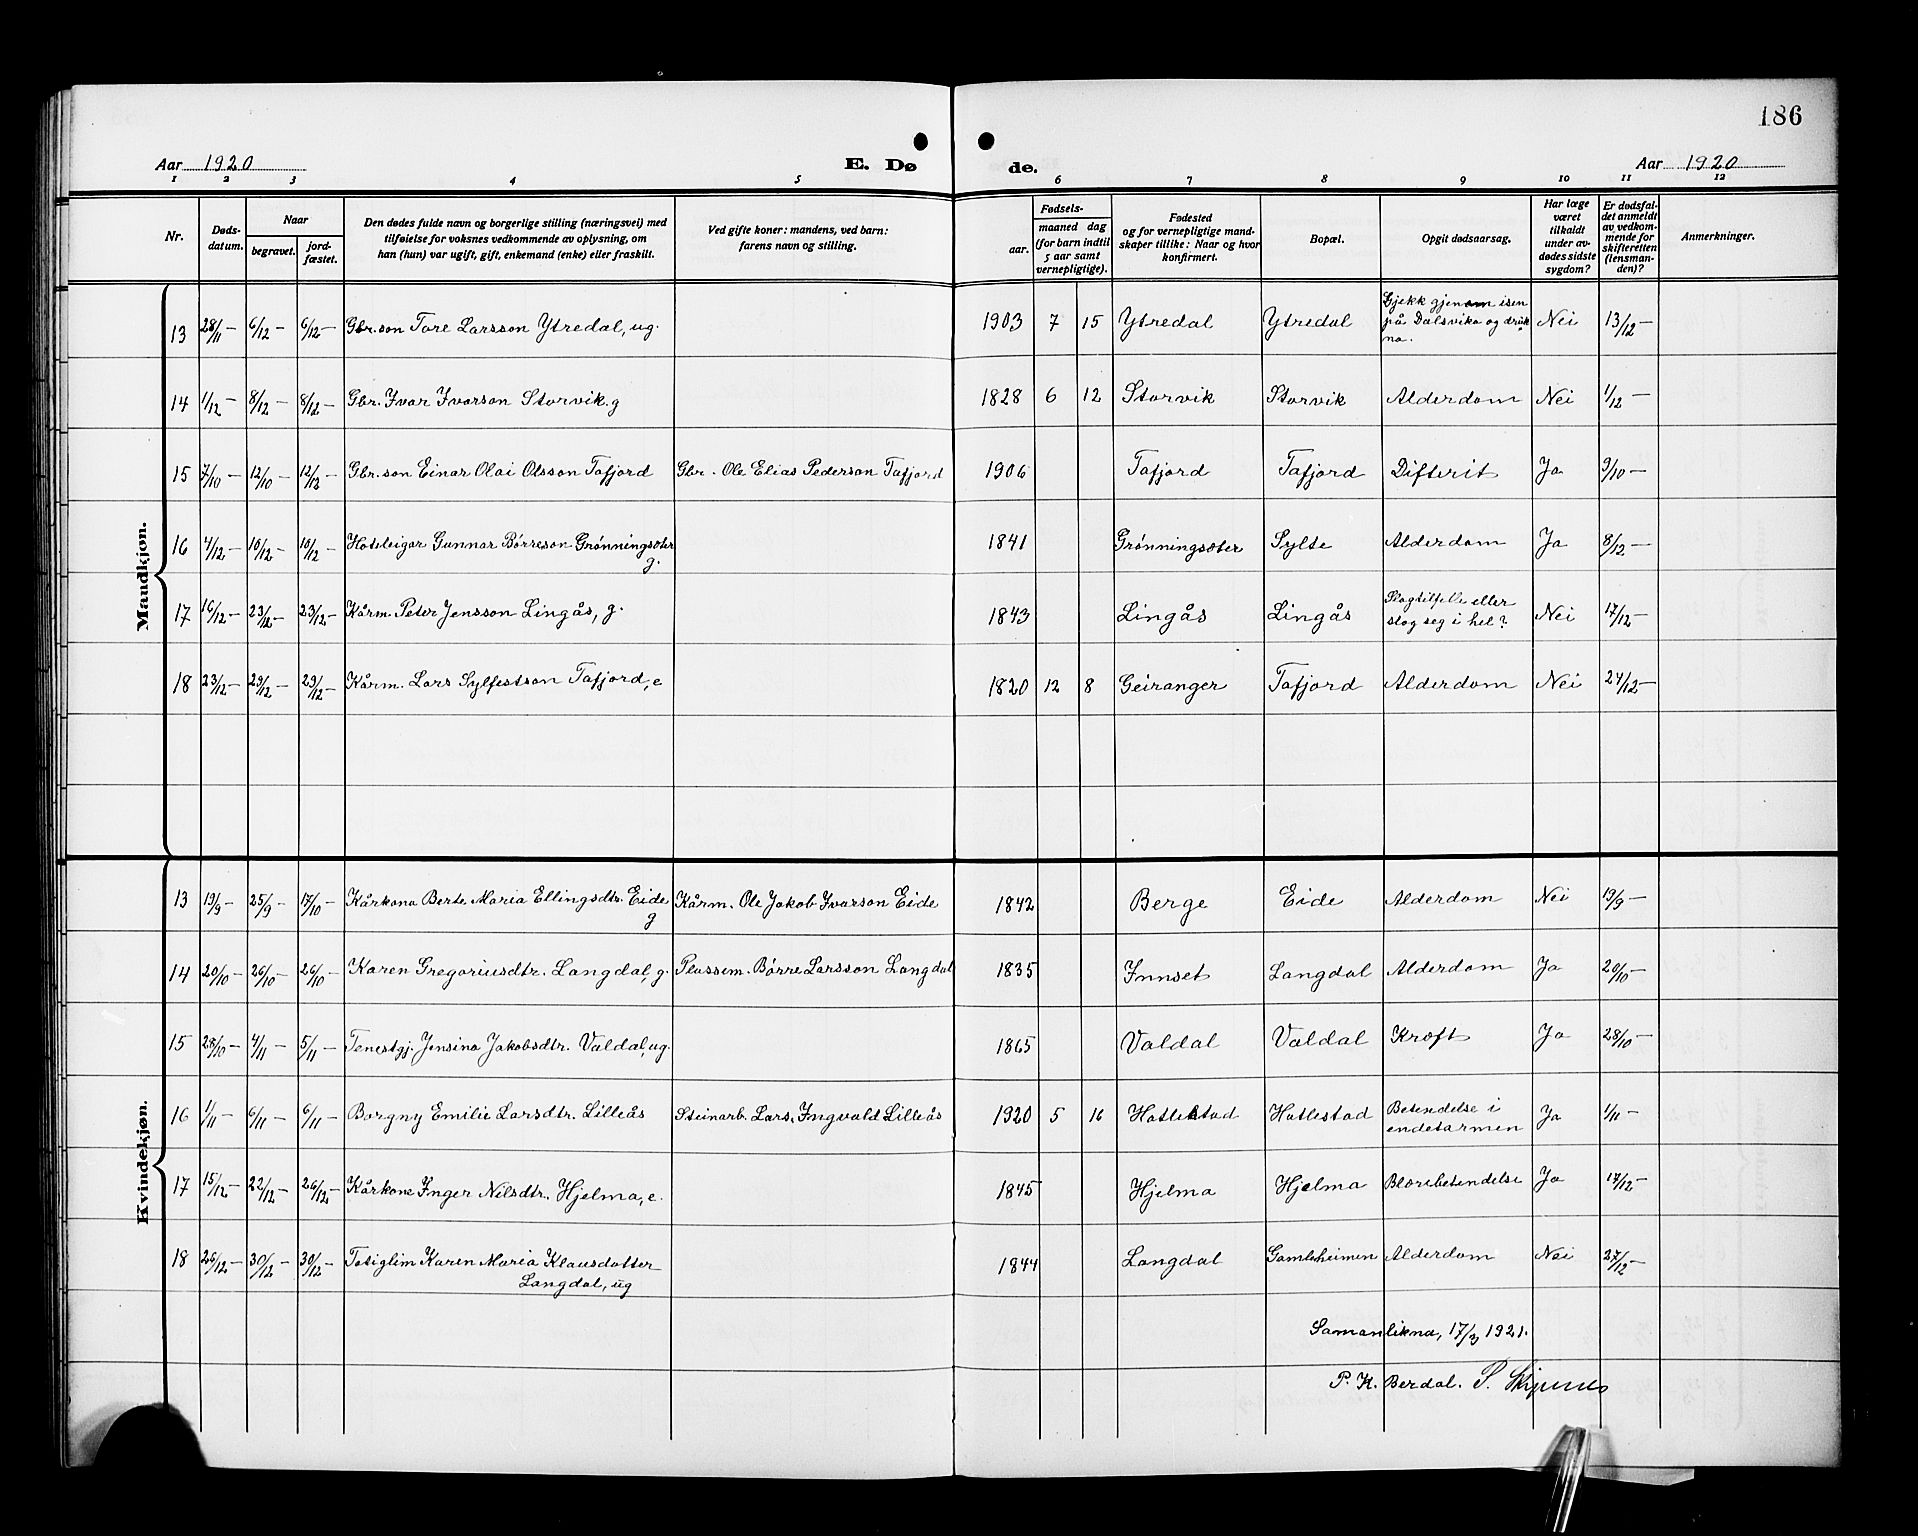 186
Aar 1920
E. Dø
de.
Aar 1920
1 2 3 4 5 6 7 8 9 10 11 12
Nr.
Døds-
datum.
Naar
begravet.
jord-
fæstet.
Den dødes fulde navn og borgerlige stilling (næringsvei) med
tilføielse for voksnes vedkommende av oplysning, om
han (hun) var ugift, gift, enkemand (enke) eller fraskilt.
Ved gifte koner: mandens, ved barn:
farens navn og stilling.
Fødsels-
aar.
maaned dag
(for barn indtil
5 aar samt
vernepligtige).
Fødested
og for vernepligtige mand-
skaper tillike: Naar og hvor
konfirmert.
Bopæl.
Opgit dødsaarsag.
Har læge
været
tilkaldt
under av-
dødes sidste
sygdom?
Er dødsfal-
det anmeldt
av vedkom-
mende for
skifteretten
(lensman-
den)?
Anmerkninger.
Mandkjøn.
13 28/11 – 6/12 – 6/12 – Gbr.son Tore Larsson Ytredal, ug. 1903 7 15 Ytredal Ytredal Gjekk gjenom isen
på Dalsvika og drukna. Nei 13/12 –
14 1/12 – 8/12 – 8/12 – Gbr. Ivar Ivarson Storvik. g 1828 6 12 Storvik Storvik Alderdom Nei 1/12 –
15 7/10 – 12/10 – 12/12 – Gbr.son Einar Olai Olsson Tafjord Gbr. Ole Elias Pederson Tafjord 1906 Tafjord Tafjord Difterit Ja 9/10 –
16 4/12 – 10/12 – 10/12 – Hoteleigar Gunnar Børreson Grønningsæter
g. 1841 Grønningsæter Sylte Alderdom Ja 8/12 –
17 16/12 – 23/12 – 23/12 – Kårm. Peter Jensson Lingås, g. 1843 Lingås Lingås Slagtilfelle eller
slog seg i hel? Nei 17/12 –
18 23/12 – 29/12 – 29/12 – Kårm. Lars Sylfestson Tafjord, e 1820 12 8 Geiranger Tafjord Alderdom Nei 24/12 –
Kvindekjøn.
13 19/9 – 25/9 – 17/10 – Kårkona Berte Maria Ellingsdtr. Eide
g Kårm. Ole Jakob Ivarson Eide 1842 Berge Eide Alderdom Nei 19/9 –
14 20/10 – 26/10 – 26/10 – Karen Gregoriusdtr. Langdal, g. Plassem. Børre Larsson Langdal 1835 Innset Langdal Alderdom Ja 20/10 –
15 28/10 – 4/11 – 5/11 – Tenestgj. Jensina Jakobsdtr. Valdal, ug. 1865 Valdal Valdal Kræft Ja 28/10 –
16 1/11 – 6/11 – 6/11 – Borgny Emilie Larsdtr. Lilleås Steinarb. Lars Ingvald Lilleås 1920 5 16 Hatlestad Hatlestad Betendelse i
endetarmen Ja 1/11 –
17 15/12 – 22/12 – 26/12 – Kårkone Inger Nilsdtr. Hjelma, e. 1845 Hjelma Hjelma Blærebetendelse Ja 17/12 –
18 26/12 – 30/12 – 30/12 – Fatiglim Karen Maria Klausdotter
Langdal, ug 1844 Langdal Gamleheimen Alderdom Nei 27/12 –
Samanlikna, 17/3 1921.
P. K. Berdal. P.